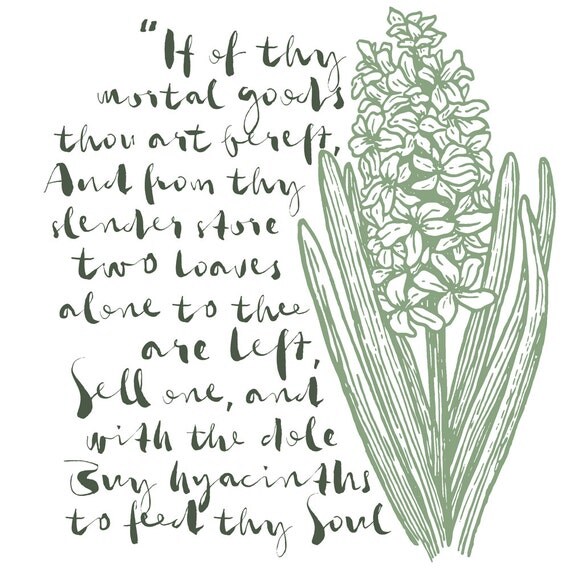 “If of thy
mortal goods
thou art bereft,
And from thy
slender store
two loaves
alone to thee
are left,
Sell one, and
with the dole
Buy hyacinths
to feed thy Soul